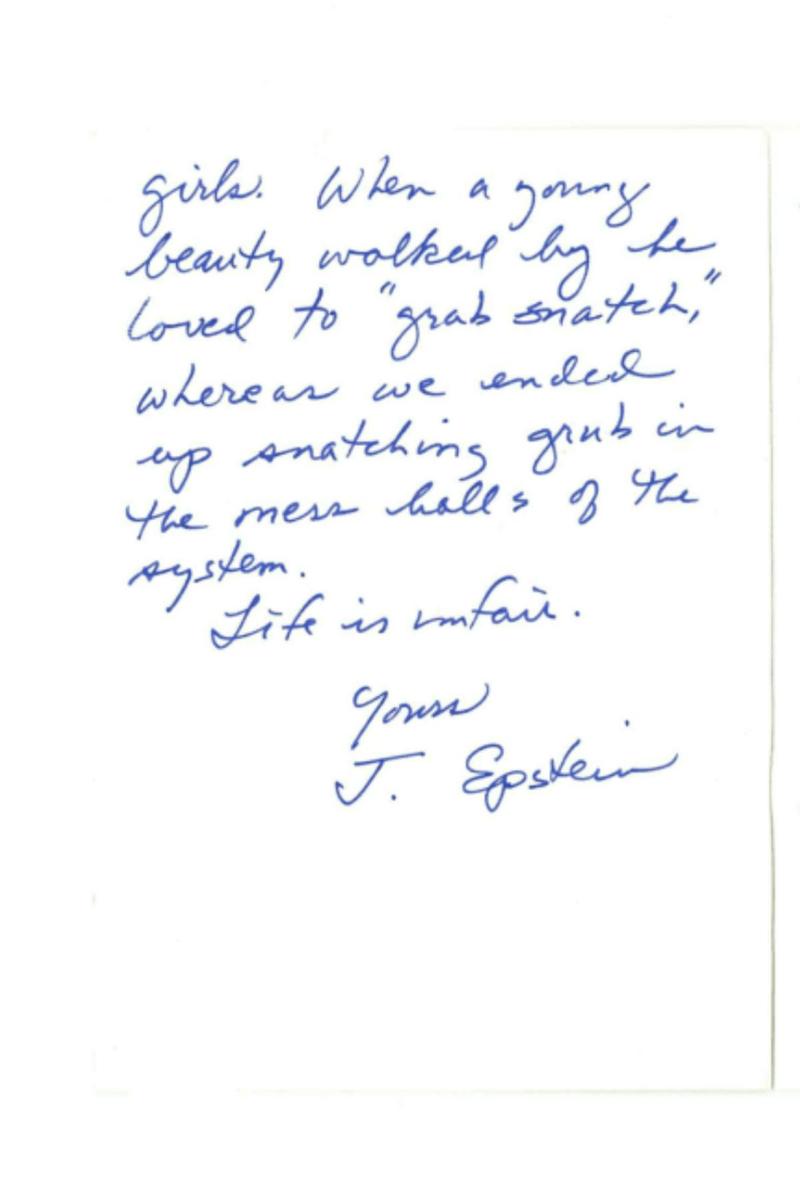 girls. When a young
beauty walked by he
loved to "grab snatch,"
whereas we ended
up snatching grub in
the mess halls of the
system.
Life is unfair.
Yours
J. Epstein